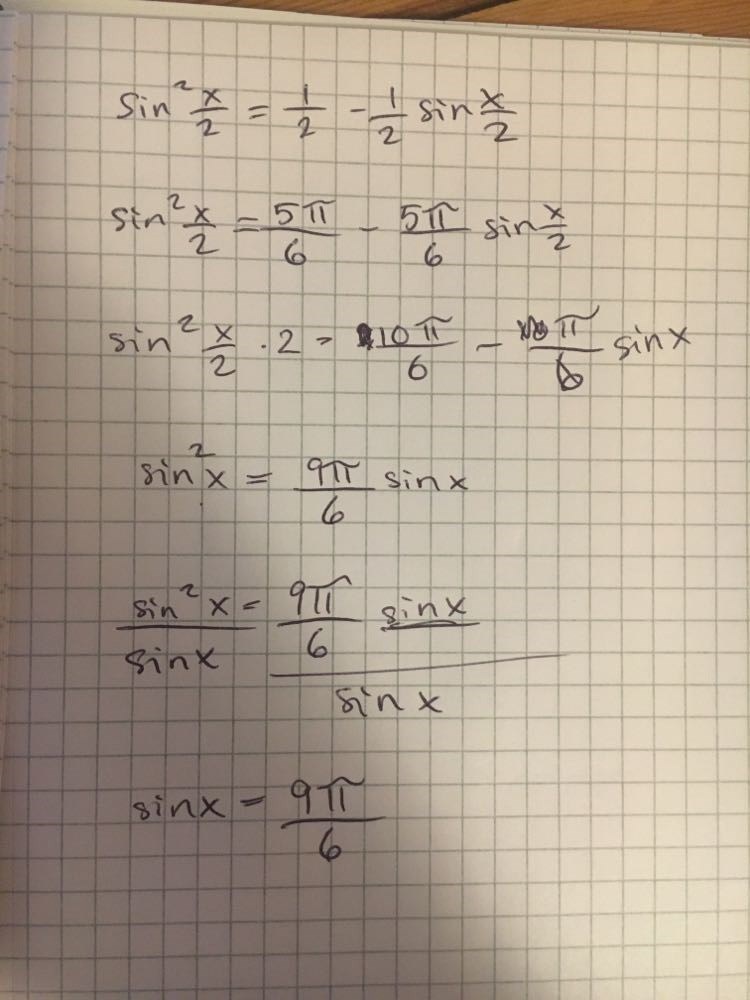 sin² x/2 = 1/2 - 1/2 sin x/2
sin² x/2 = 5π/6 - 5π/6 sin x/2
sin² x/2 · 2 = 10π/6 - π/6 sin x
sin² x = 9π/6 sin x
sin² x / sin x = 9π/6 sin x / sin x
sin x = 9π/6